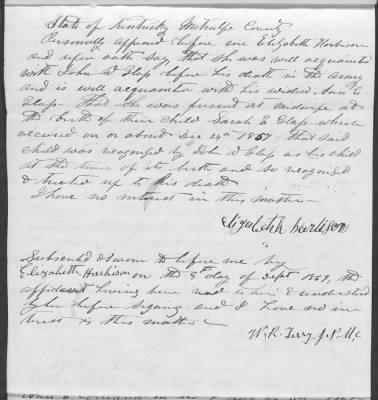 State of Kentucky Metcalfe County
Personally appeared before me Elizabeth Harbison
and upon oath Say that She was well acquainted
with John W Glass before his death in the army
and is well acquainted with his widow Ann E
Glass. that She was present as midwife at
the birth of their child Sarah E Glass which
occured on or about Dec 24th 1857 that said
child was recognized by John W Glass as his child
at the time of its birth and so recognized
& treated up to his death
I have no interest in this matter
Elizabeth harbison
Subscribed & Sworn to before me by
Elizabeth Harbison on the 5th day of Sept 1863, the
affidavit having been read to her & understood
by her before signing and I have no in
terest in this matter
W. R. Terry J. P. M. C